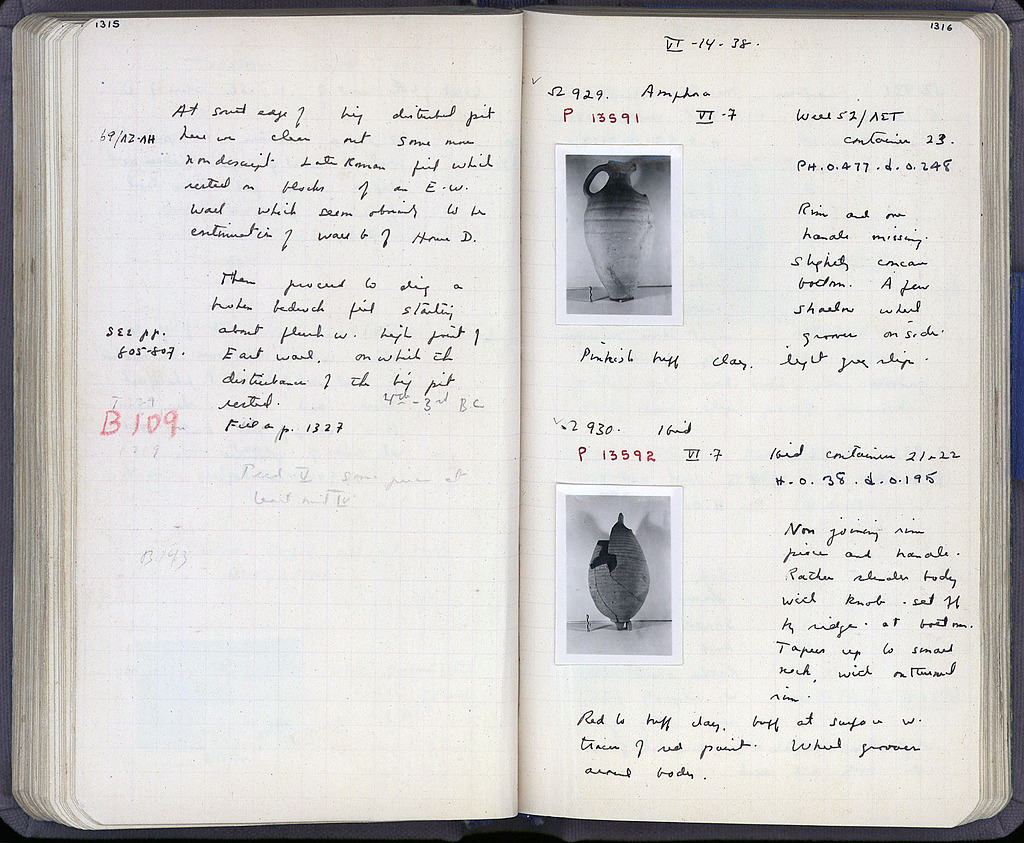 1315
At south edge of big disturbed pit
69/ΛΖ-ΛΗ
here we clear out some more
nondescript Late Roman fill which
rested on blocks of an E-W.
wall which seem obviously to be
continuation of wall b of House D.
Then proceed to dig a
broken bedrock fill starting
SEE pp.
805-807.
about flush w. high point of
East wall, on which the
disturbance of the big pit
rested.
4th-3rd BC
B 109
Fill a p. 1327
some pieces at
least mid IV
B 143
1316
VI-14-38.
Ω 929. Amphora
P 13591
VI-7
Well 52/
container 23.
PH. 0.477. d. 0.248
Rim and one
handle missing.
Slightly concave
bottom. A few
shallow wheel
grooves on side.
Pinkish buff clay. light grey slip.
Ω 930. Ibid
P 13592 VI-7
Ibid container 21-22
H. 0.38. d. 0.195
Non joining rim
piece and handle.
Rather slender body
with knob set off
by ridge at bottom.
Tapers up to small
neck, with outturned
rim.
Red to buff clay, buff at surface w.
traces of red paint. Wheel grooves
around body.